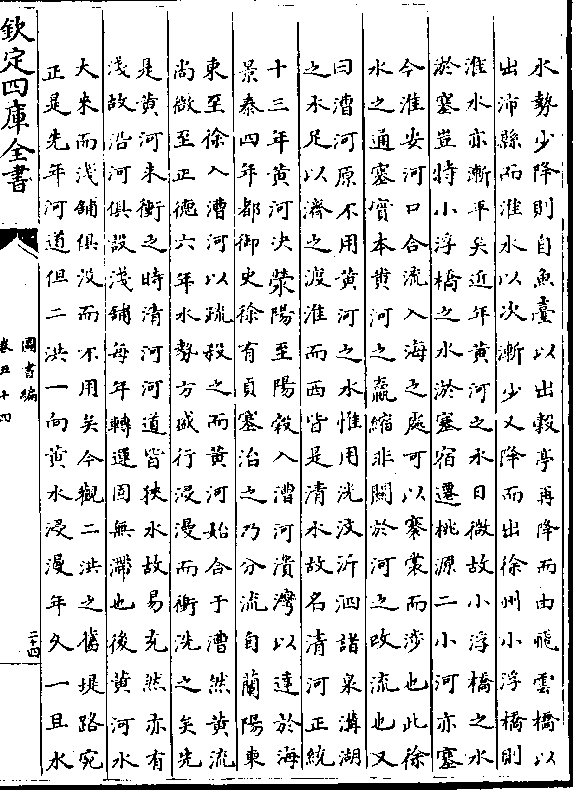 水勢少降則自魚臺以出穀亭再降而由飛雲橋以
出沛縣而淮水以次漸少又降而出徐州小浮橋則
淮水亦漸平矣近年黄河之水日微故小浮橋之水
淤塞豈特小浮橋之水淤塞宿遷桃源二小河亦塞
今淮安河口合流入海之處可以褰裳而涉也此徐
水之通塞實本黄河之贏縮非關於河之改流也又
曰漕河原不用黄河之水惟用洸汶沂泗諸泉溝湖
之水足以濟之渡淮而西皆是清水故名清河正統
十三年黄河決滎陽至陽穀入漕河潰灣以達於海
景泰四年都御史徐有貞塞治之乃分流自蘭陽東
東至徐入漕河以疏殺之而黄河始合于漕然黄流
尚微至正德六年水勢方盛行浸漫而衝洗之矣先
是黄河未衝之時清河河道皆狹水故易充然亦有
淺故沿河俱設淺鋪每年轉運固無滯也後黄河水
大來而淺鋪俱没而不用矣今觀二洪之舊堤路宛
正是先年河道但二洪一向黄水浸漫年久一旦水
欽定四庫全書
圖書編
卷五十四
二十四